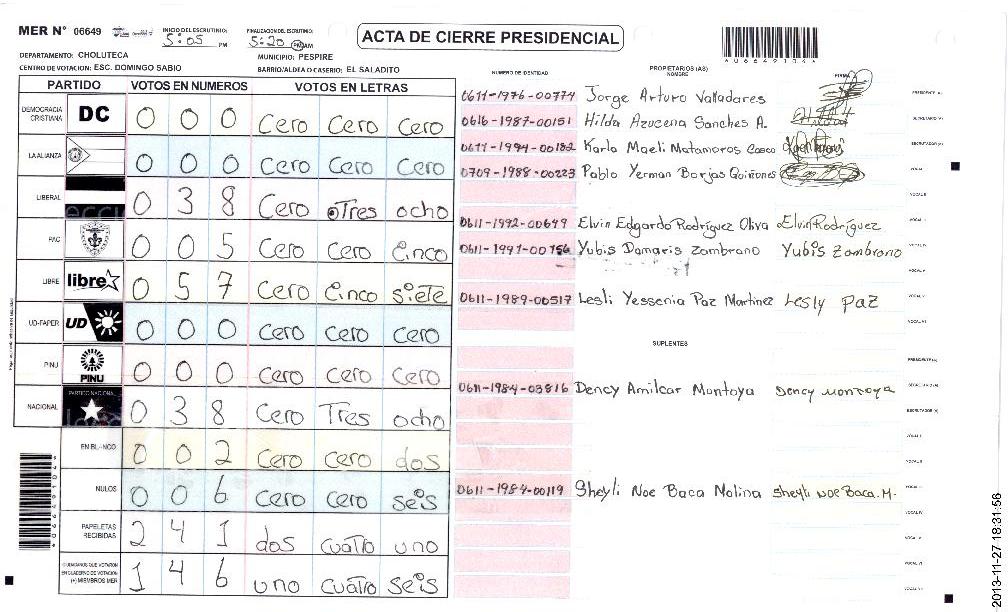 MER N° 06649
INICIO DEL ESCRUTINIO:
5:05 PM
FINALIZACION DEL ESCRUTINIO:
5:20 PM AM
ACTA DE CIERRE PRESIDENCIAL
DEPARTAMENTO: CHOLUTECA
MUNICIPIO: PESPIRE
CENTRO DE VOTACION: ESC. DOMINGO SABIO
BARRIO/ALDEA O CASERIO: EL SALADITO
PARTIDO VOTOS EN NUMEROS VOTOS EN LETRAS
DEMOCRACIA CRISTIANA DC 0 0 0 Cero Cero Cero
LA ALIANZA 0 0 0 Cero Cero Cero
LIBERAL 0 3 8 Cero Tres ocho
PAC 0 0 5 Cero Cero Cinco
LIBRE libre 0 5 7 Cero Cinco Siete
UD-FAPER UD 0 0 0 Cero Cero Cero
PINU PINU 0 0 0 Cero Cero Cero
NACIONAL PARTIDO NACIONAL 0 3 8 Cero Tres ocho
EN BLANCO 0 0 2 Cero Cero dos
NULOS 0 0 6 Cero Cero Seis
PAPELETAS RECIBIDAS 2 4 1 dos Cuatro uno
CIUDADANOS QUE VOTARON EN CUADERNO DE VOTACION (+) MIEMBROS MER 1 4 6 uno Cuatro Seis
NUMERO DE IDENTIDAD
PROPIETARIOS (AS)
NOMBRE
FIRMA
0611-1976-00774 Jorge Arturo Valladares
0616-1987-00151 Hilda Azucena Sanches A.
0611-1994-00182 Karla Maeli Matamoros Casco
0709-1988-00223 Pablo Yerman Borjas Quiñones
0611-1992-00649 Elvin Edgardo Rodríguez Oliva Elvin Rodríguez
0611-1991-00156 Yubis Damaris Zambrano Yubis Zambrano
0611-1989-00517 Lesli Yessenia Paz Martinez Lesly Paz
SUPLENTES
0611-1984-03816 Dency Amilcar Montoya Dency Montoya
0611-1984-00119 Sheyli Noe Baca Molina Sheyli Noe Baca. M.
2013-11-27 18:31:56